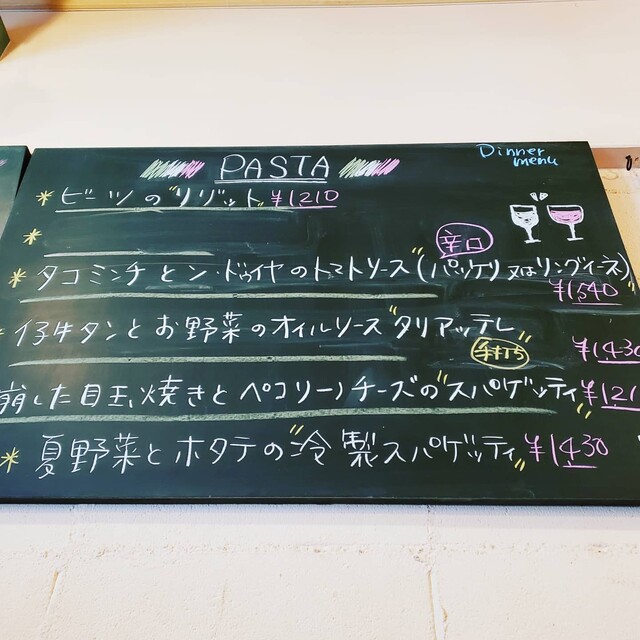 Dinner menu
PASTA
* ビーツの"リゾット" ¥1210
*
辛口
* タコミンチとン・ドゥイヤのトマトソース"(パッケリ又はリングイーネ)
¥1,540
仔牛タンとお野菜のオイルソース"タリアッテレ" ¥1430
手打ち
崩した目玉焼きとペコリーノチーズの"スパゲッティ" ¥121
* 夏野菜とホタテの"冷製スパゲッティ" ¥1430